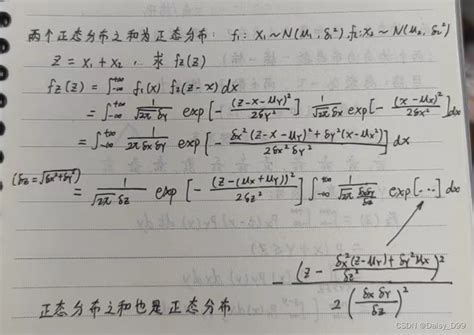 两个正态分布之和为正态分布: f₁: X₁~N(μ₁, δ₁²) f₂:X₂~N(μ₂, δ₂²)
Z = X₁ + X₂ , 求 f_Z(Z)
f_Z(Z) = ∫_{-∞}^{+∞} f₁(x) f₂(z-x) dx
= ∫_{-∞}^{+∞} 1/(√2π δ_Y) exp[-(z-x-μ_Y)²/(2δ_Y²)] 1/(√2π δ_X) exp[-(x-μ_X)²/(2δ_X²)] dx
= ∫_{-∞}^{+∞} 1/(√2π √2π δ_X δ_Y) exp[-(δ_X²(z-x-μ_Y)²+δ_Y²(x-μ_X)²)/(2δ_X²δ_Y²)] dx
(δ_Z=√(δ_X²+δ_Y²)) = 1/(√2π δ_Z) exp[-(z-(μ_X+μ_Y))²/(2δ_Z²)] ∫_{-∞}^{+∞} 1/(√2π (δ_Xδ_Y/δ_Z)) exp[…] dx
-(z - (δ_X²(z-μ_Y)+δ_Y²μ_X)/δ_Z²)²/(2(δ_Xδ_Y/δ_Z)²)
正态分布之和也是正态分布
CSDN @Daisy_D99